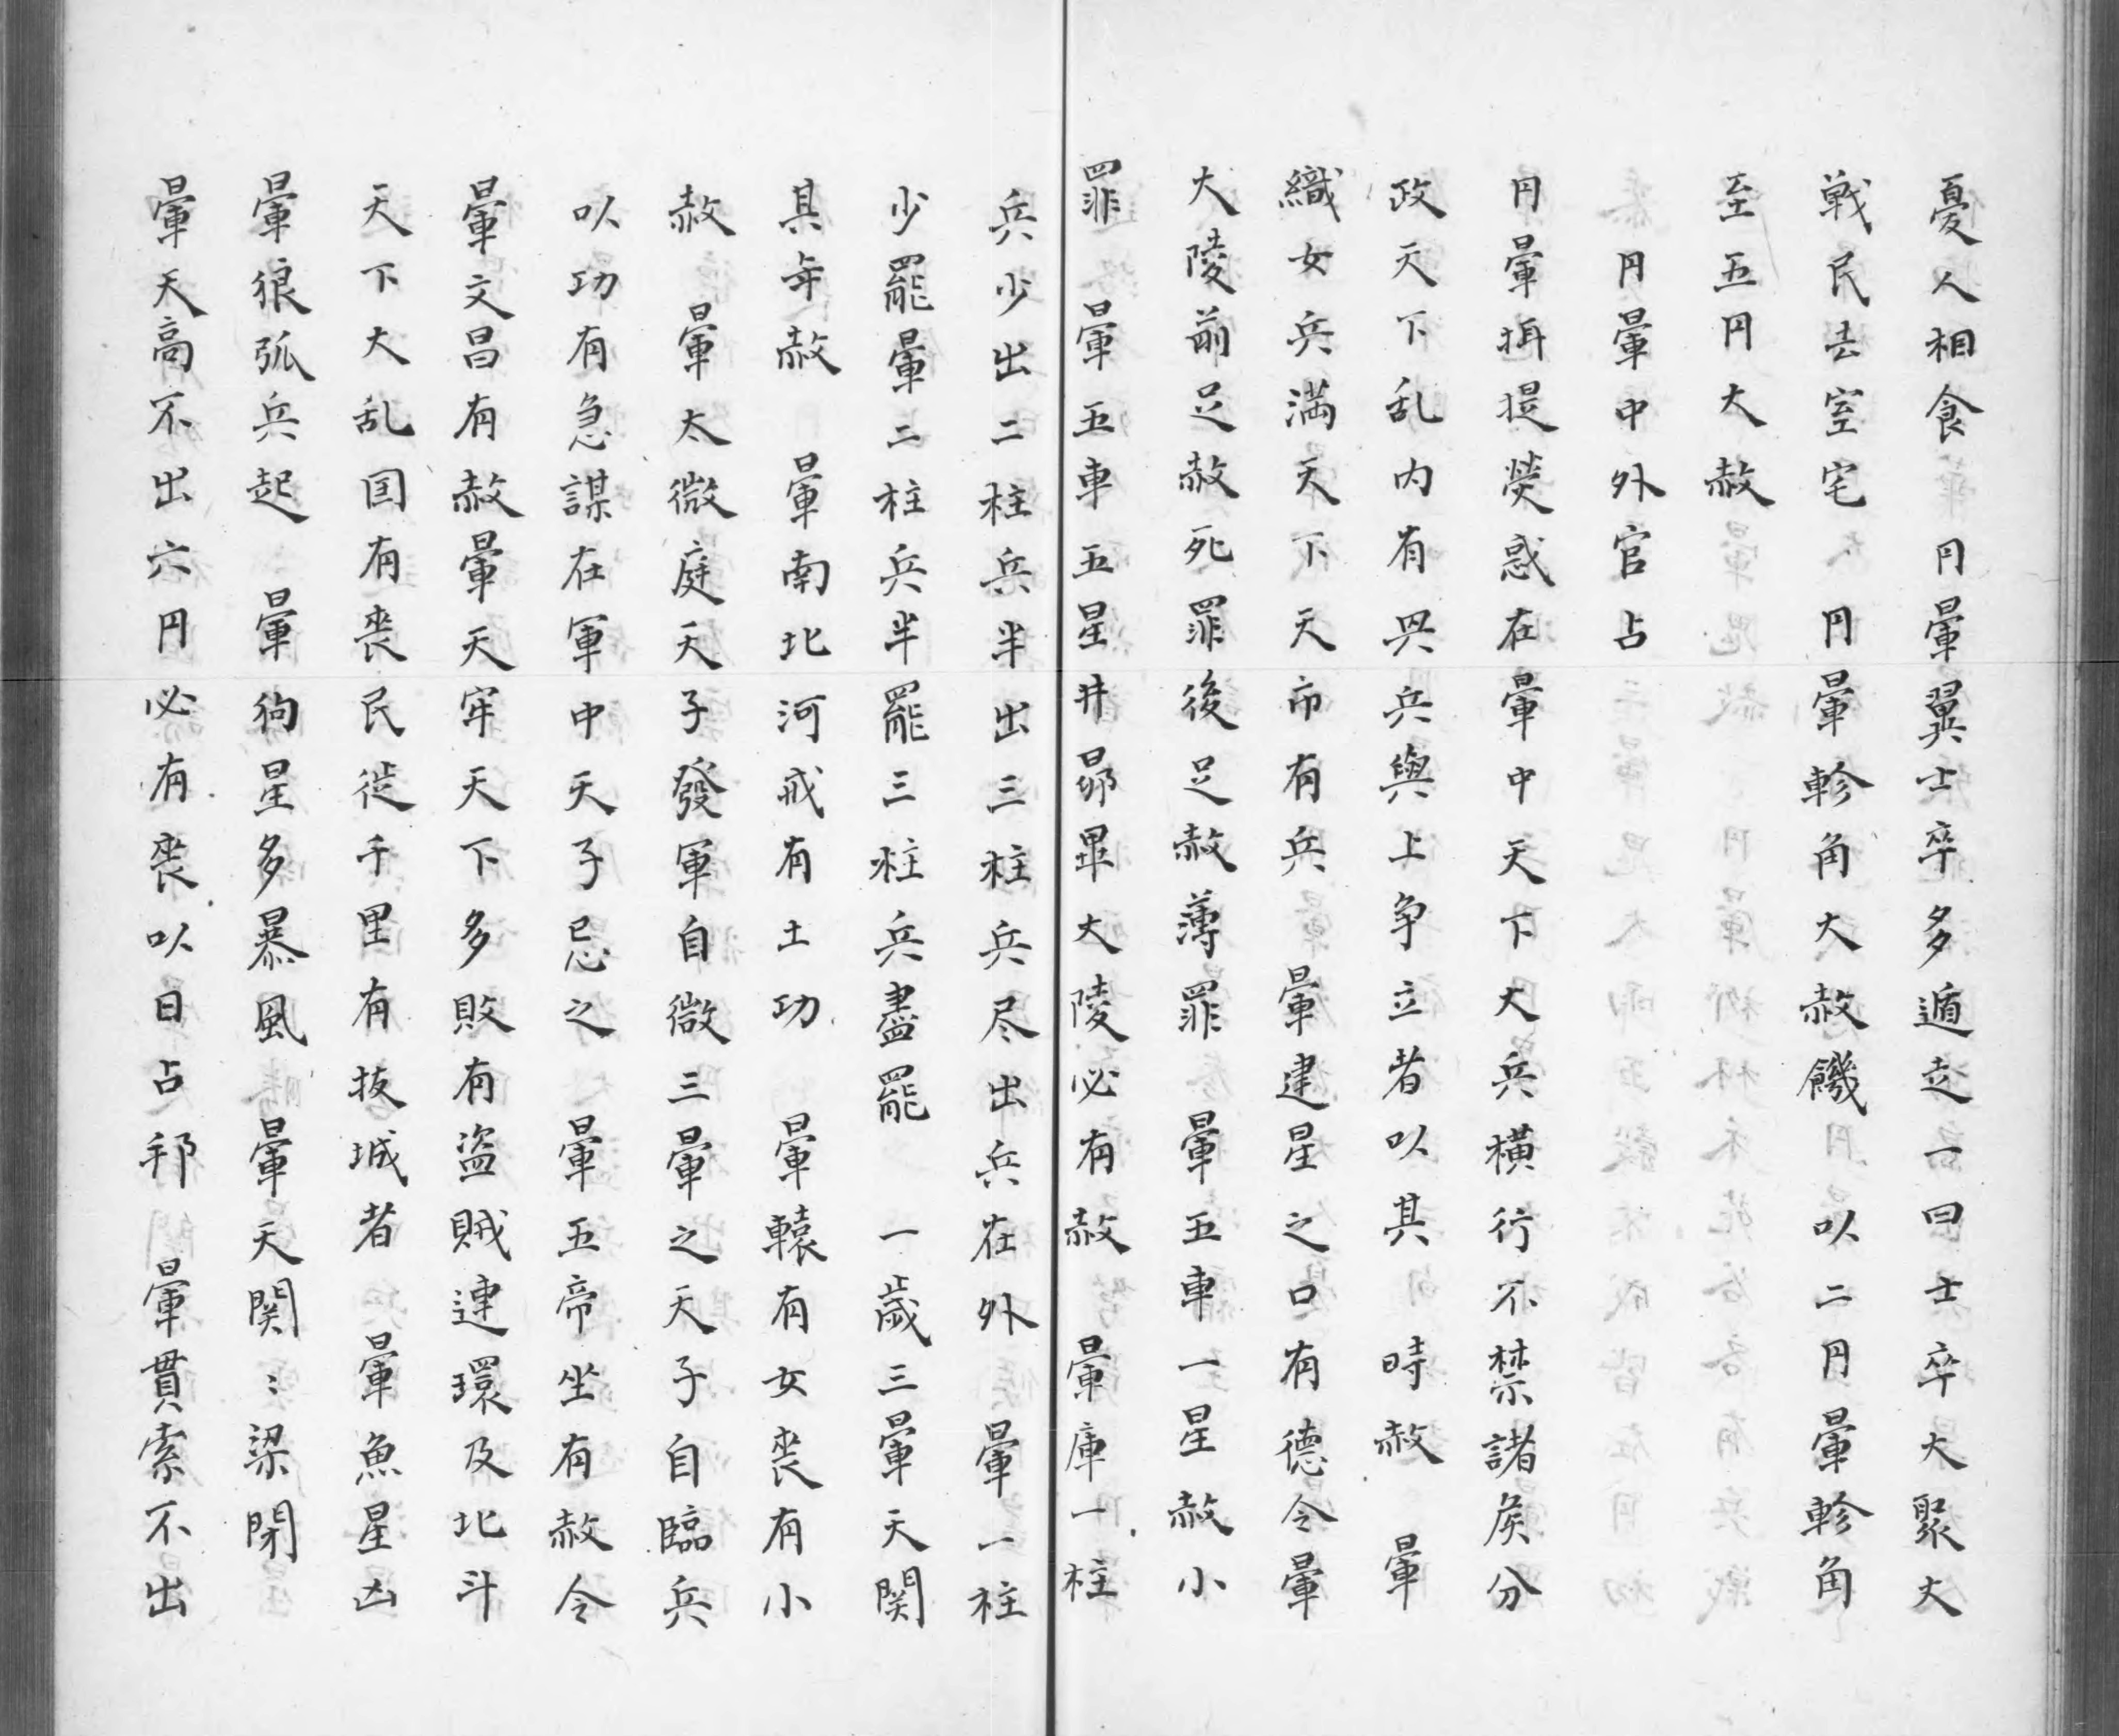 憂人相食　円暈翼士卒多遁走一曰士卒大聚大
戦民去室宅　円暈軫角大赦饑　以二円暈軫角
至五円大赦
円暈中外官占
円暈珥提熒惑在暈中天下大兵横行不禁諸侯分
政天下乱内有兵與上争立者以其　時赦　暈
織女兵満天下天市有兵　暈建星之口有德令暈
大陵前足赦死罪後足赦薄罪　暈五車一星赦小
罪　暈五車五星井昴畢大陵必有赦　暈庫一柱
兵少出二柱兵半出三柱兵尽出兵在外　暈一柱
少罷暈二柱兵半罷三柱兵盡罷　一歳三暈天関
其年赦　暈南北河戒有土功　暈轅有女喪有小
赦　暈太微庭天子發軍自微三暈之天子自臨兵
以功有急謀在軍中天子忌之　暈五帝坐有赦令
暈文昌有赦暈天牢天下多敗有盗賊連環及北斗
天下大乱国有喪民徙千里有抜城者　暈魚星凶
暈狼弧兵起　暈狗星多暴風　暈天関〻梁閉
暈天高不出六円必有喪以日占邦　暈貫索不出